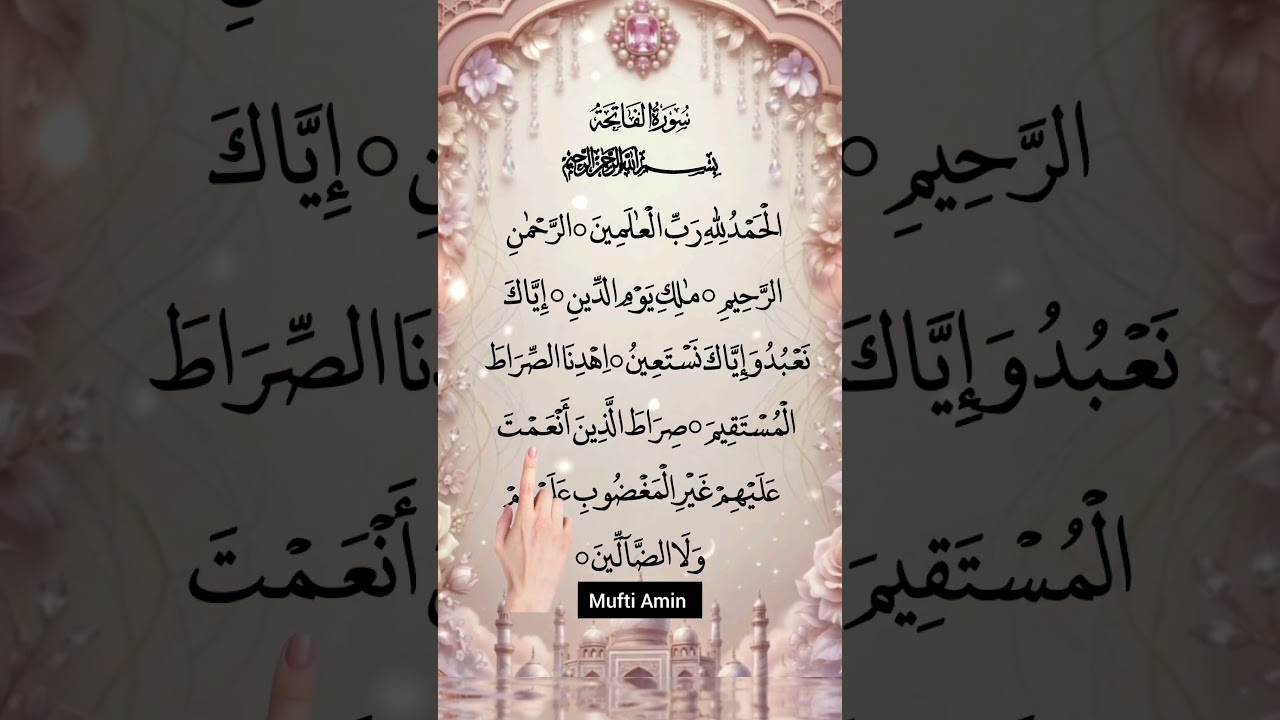 سُورَةُ الْفَاتِحَةُ
بِسْمِ اللهِ الرَّحْمٰنِ الرَّحِيْمِ
الْحَمْدُ لِلّٰهِ رَبِّ الْعٰلَمِينَ ○ الرَّحْمٰنِ
الرَّحِيمِ ○ مٰلِكِ يَوْمِ الدِّينِ ○ إِيَّاكَ
نَعْبُدُ وَإِيَّاكَ نَسْتَعِينُ ○ اِهْدِنَا الصِّرَاطَ
الْمُسْتَقِيمَ ○ صِرَاطَ الَّذِينَ أَنْعَمْتَ
عَلَيْهِمْ غَيْرِ الْمَغْضُوبِ
وَلَا الضَّآلِّينَ ○
Mufti Amin